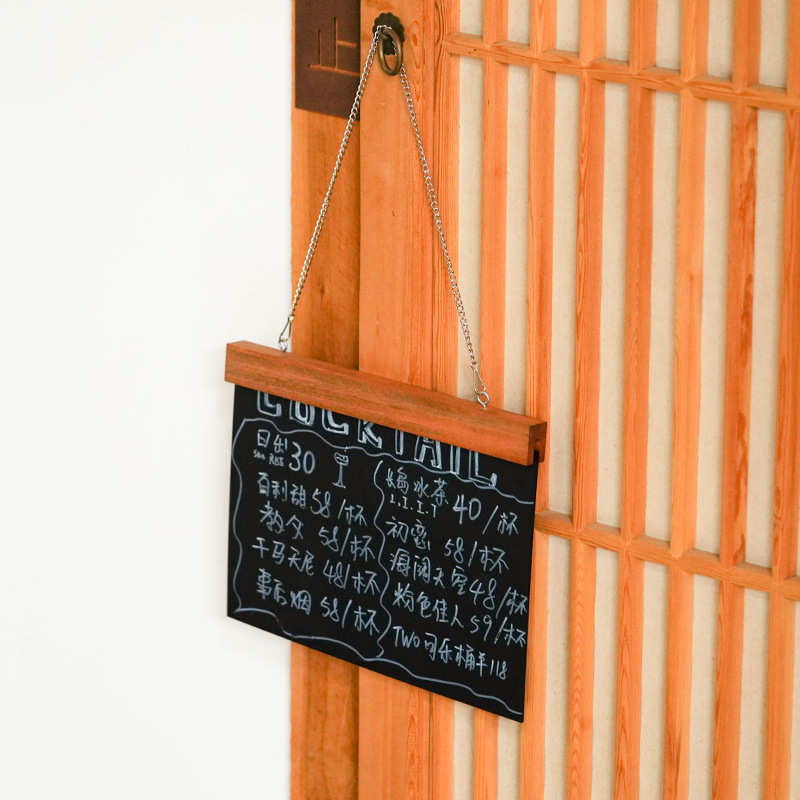 止
COCKTAIL
日出 30
Sun RISE
百利甜 58/杯
58/杯
干马天尼 48/杯
事后烟 58/杯
长岛冰茶 40/杯
L.I.I.T
初恋 58/杯
海阔天空 48/杯
粉色佳人 59/杯
TWO 可乐桶 118